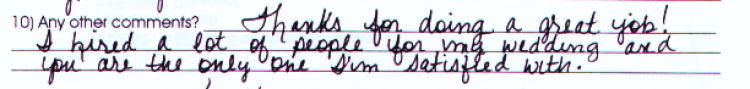 10) Any other comments? Thanks for doing a great job!
I hired a lot of people for my wedding and
you are the only one I'm satisfied with.